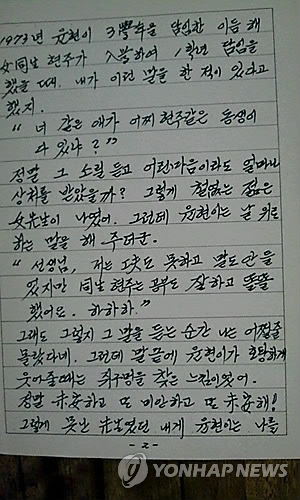 1973년 윤현이 3學年을 담임한 이듬해
女同生 현주가 入學하여 1학년 담임을
했을 때. 내가 이런 말을 한 적이 있다고
했지.
"너 같은 애가 어찌 현주같은 동생이
다 있냐?"
정말 그 소릴 듣고 어린마음이라도 얼마나
상처를 받았을까? 그렇게 철없는 젊은
女先生이 나였어. 그런데 윤현이는 날 위로
하는 말을 해 주더군.
"선생님, 저는 工夫도 못하고 말도 안 듣
있지만 同生 현주는 공부도 잘하고 똘똘
했어요. 하하하."
그래도 그렇지 그 말을 듣는 순간 나는 어쩔줄
몰랐다네. 그런데 말끝에 윤현이가 호탕하게
웃어줄때는 쥐구멍을 찾는 느낌이었어.
정말 未安하고 또 미안하고 또 未安해!
그렇게 못난 先生였던 내게 윤현이는 나를
- 2 -
YONHAP NEWS